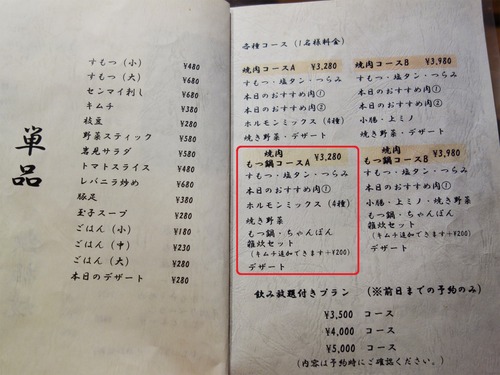 単品
すもつ（小） ¥480
すもつ（大） ¥680
センマイ刺し ¥680
キムチ ¥380
枝豆 ¥280
野菜スティック ¥580
岩見サラダ ¥580
トマトスライス ¥480
レバニラ炒め ¥680
豚足 ¥380
玉子スープ ¥280
ごはん（小） ¥180
ごはん（中） ¥230
ごはん（大） ¥280
本日のデザート ¥280
各種コース（1名様料金）
焼肉コースA ¥3,280
すもつ・塩タン・つらみ
本日のおすすめ肉①
本日のおすすめ肉②
ホルモンミックス（4種）
焼き野菜・デザート
焼肉コースB ¥3,980
すもつ・塩タン・つらみ
本日のおすすめ肉①
本日のおすすめ肉②
小腸・上ミノ
焼き野菜・デザート
焼肉
もつ鍋コースA ¥3,280
すもつ・塩タン・つらみ
本日のおすすめ肉①
ホルモンミックス（4種）
焼き野菜
もつ鍋・ちゃんぽん
雑炊セット
（キムチ追加できます+¥200）
デザート
焼肉
もつ鍋コースB ¥3,980
すもつ・塩タン・つらみ
本日のおすすめ肉①
小腸・上ミノ・焼き野菜
もつ鍋・ちゃんぽん
雑炊セット
（キムチ追加できます+¥200）
デザート
飲み放題付きプラン （※前日までの予約のみ）
¥3,500 コース
¥4,000 コース
¥5,000 コース
（内容は予約時にご確認ください。）